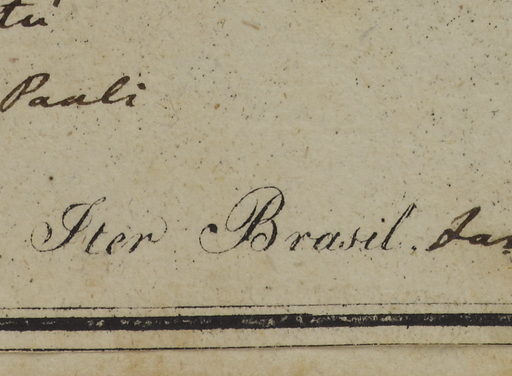 tú
Pauli
Iter Brasil.